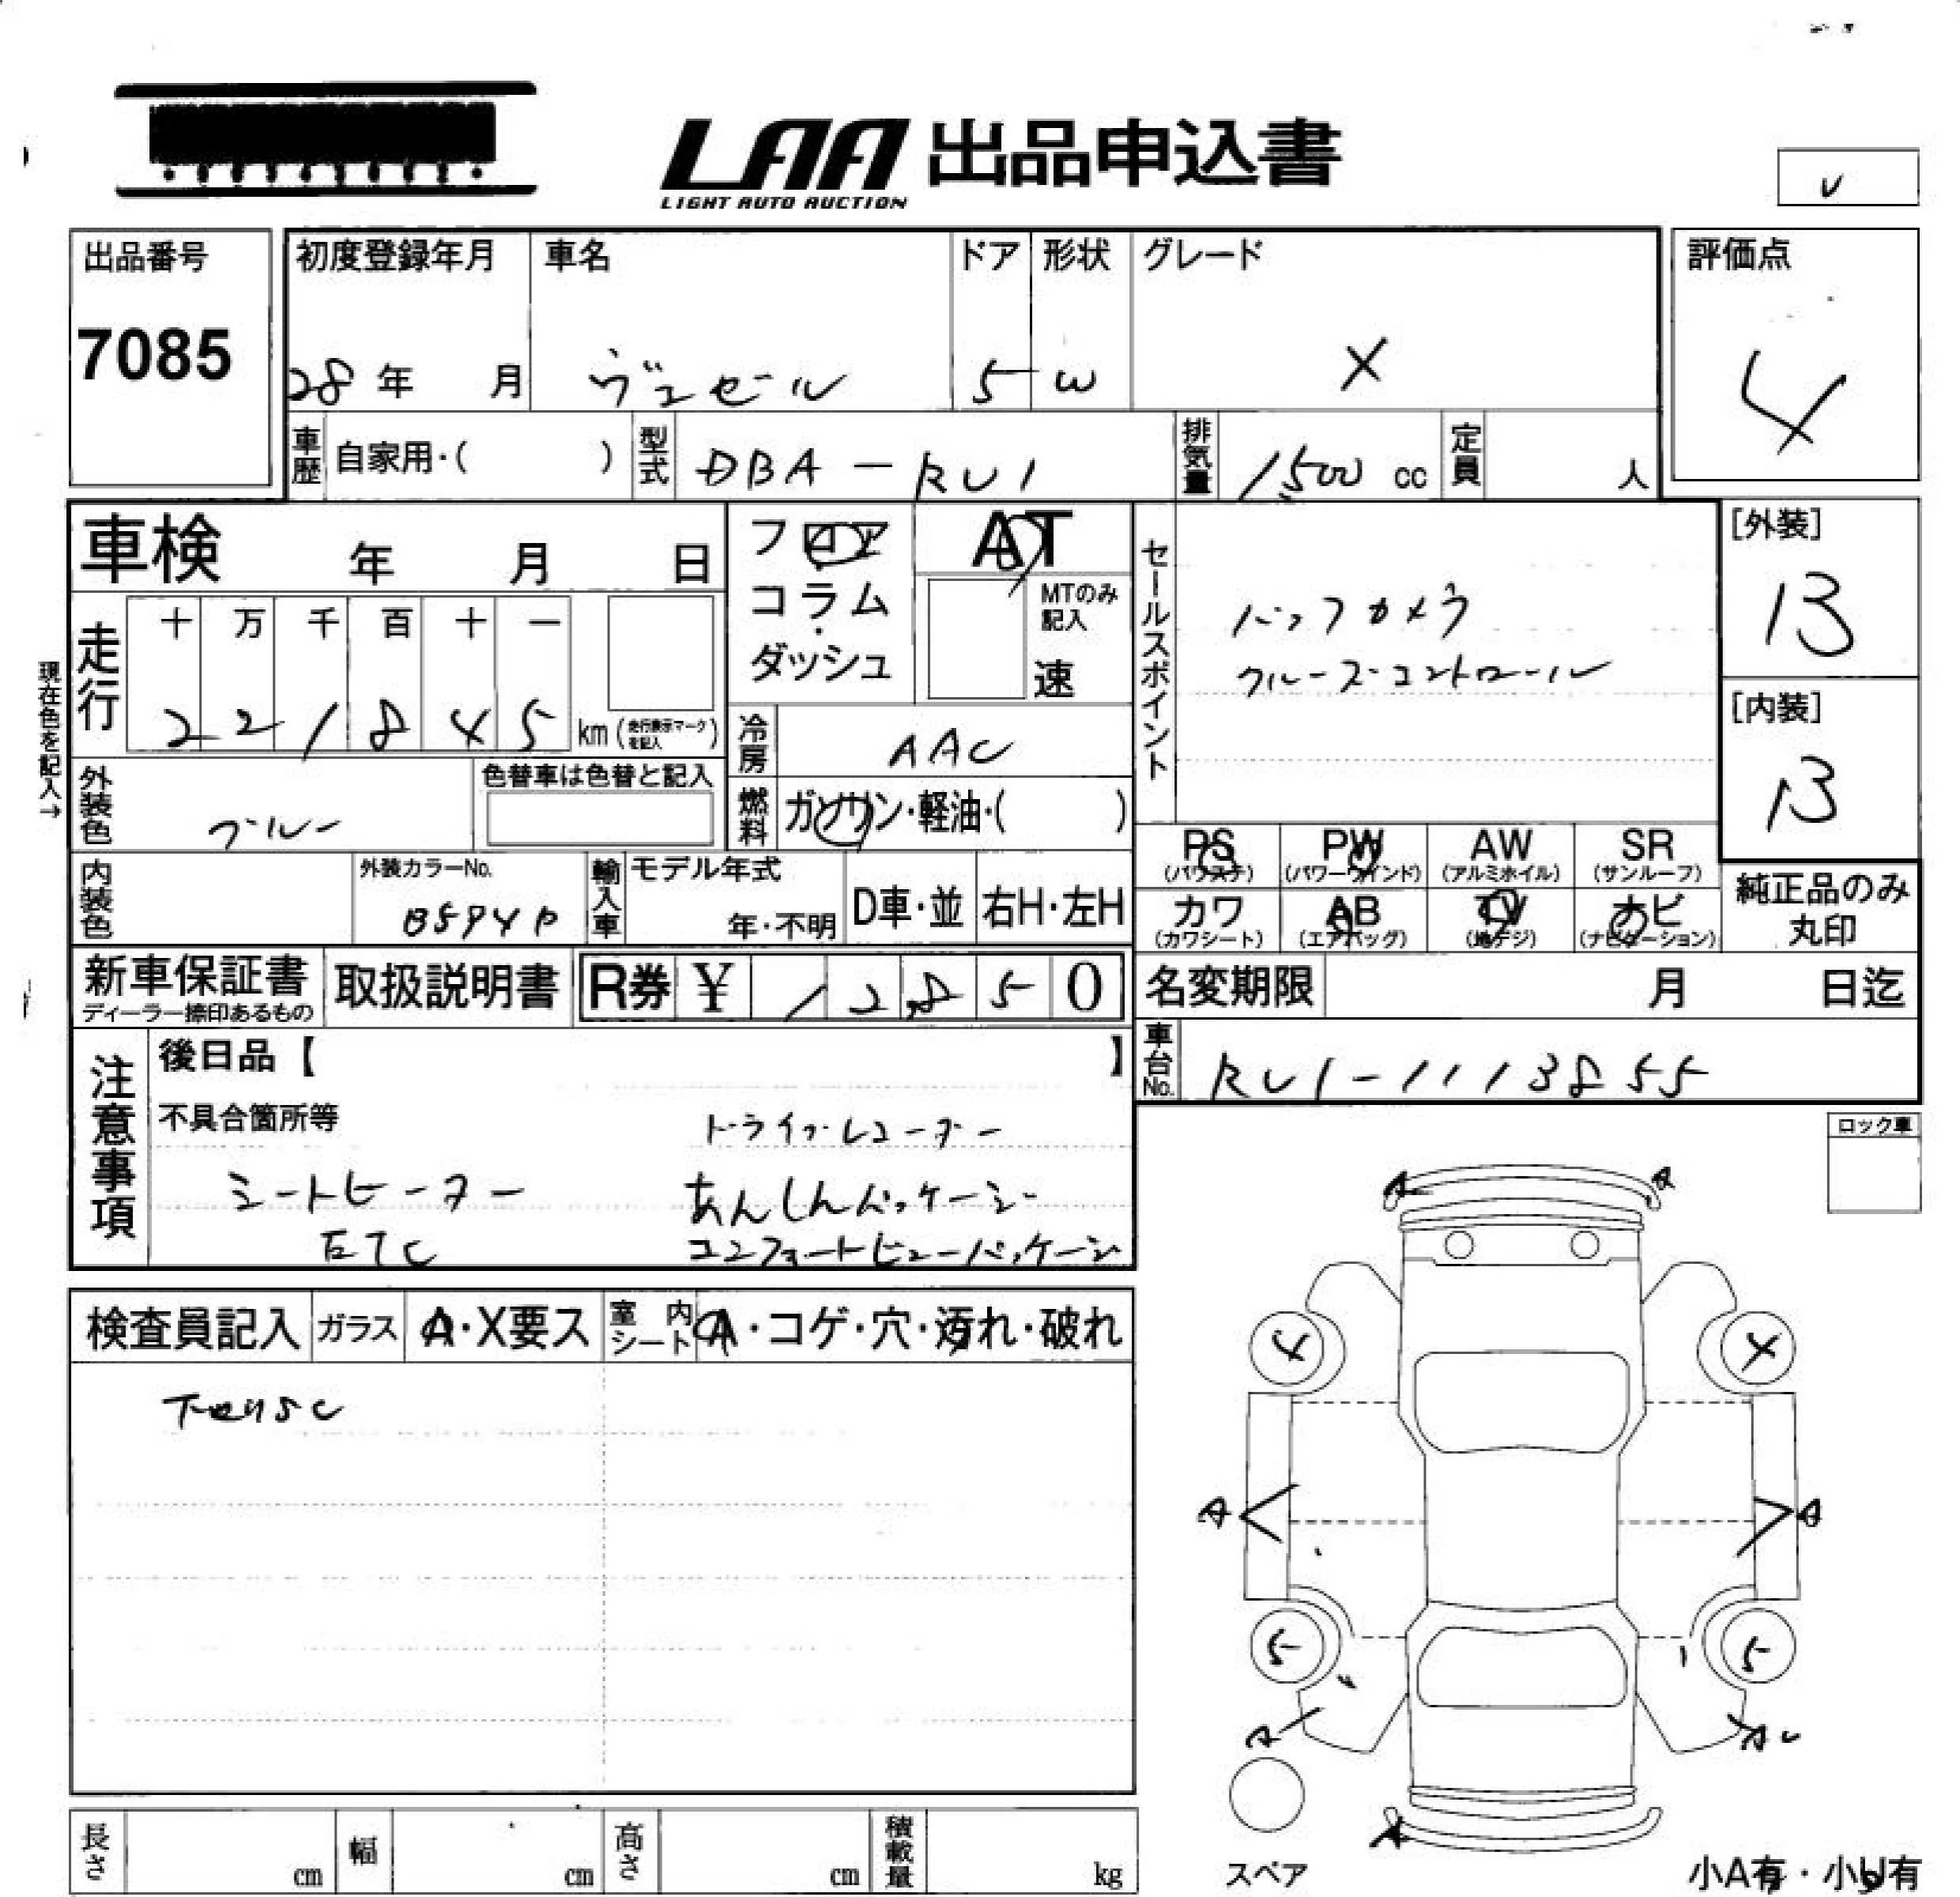 LAA 出品申込書
LIGHT AUTO AUCTION
出品番号
7085
初度登録年月
28 年 月
車名
ヴェゼル
ドア
5
形状
W
グレード
X
評価点
4
車歴 自家用・( )
型式 DBA-RU1
排気量 1500 cc
定員 人
車検 年 月 日
フロア
コラム
ダッシュ
AT
MTのみ記入
速
セールスポイント
バックカメラ
クルーズコントロール
[外装]
13
[内装]
13
現在色を記入→
走行
十 万 千 百 十 一
2 2 1 8 4 5 km (走行表示マークを記入)
冷房 AAC
燃料 ガソリン・軽油・( )
外装色 ブルー
色替車は色替と記入
内装色
外装カラーNo.
B594P
輸入車
モデル年式
年・不明
D車・並
右H・左H
PS (パワステ)
PW (パワーウインド)
AW (アルミホイル)
SR (サンルーフ)
カワ (カワシート)
AB (エアバッグ)
TV (地デジ)
ナビ (ナビゲーション)
純正品のみ丸印
新車保証書
ディーラー捺印あるもの
取扱説明書
R券 ¥ 1 2 8 5 0
名変期限 月 日迄
車台No. RU1-1113855
注意事項
後日品【 】
不具合箇所等
ドライブレコーダー
シートヒーター
あんしんパッケージ
ETC
コンフォートビューパッケージ
ロック車
検査員記入
ガラス A・X要ス
室内シート A・コゲ・穴・汚れ・破れ
下回りSC
A A
4 4
A A
5 5
A
スペア
小A有・小U有
長さ cm
幅 cm
高さ cm
積載量 kg